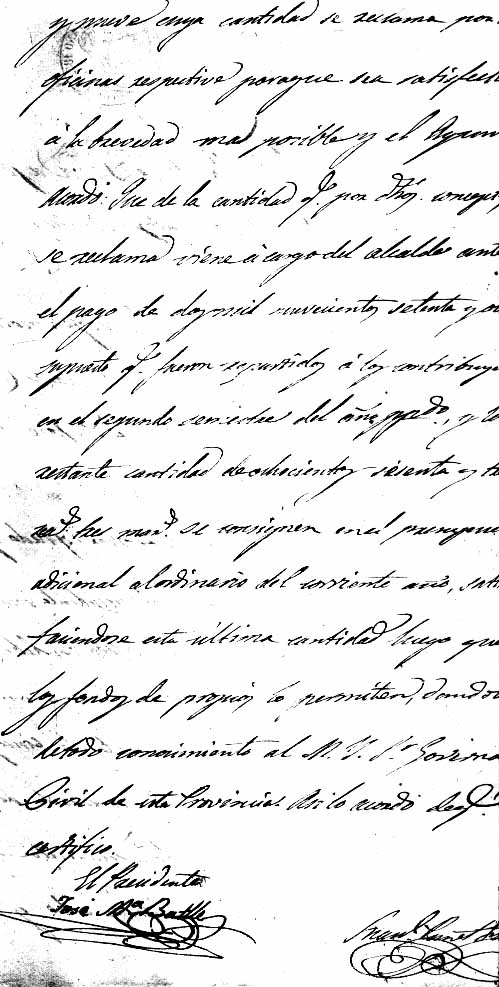 y nueve cuya cantidad se reclama por
oficinas respective paraque sea satisfech
á la brevedad mas posible y el Ayun
Acordó: Que de la cantidad qe. por dhos. conceptos
se reclama viene á cargo del alcalde ante
el pago de dos mil nuevecientos setenta y
supuesto qe. fueron repartidos á los contribuye
en el segundo semestre del año ppdo., y la
restante cantidad de ochocientos sesenta y tr
reas. tres mars. se consignen en el presupue
adicional al ordinario del corriente año, sati
faciendose esta última cantidad luego que
los fondos de propios lo permiten, dandose
de todo conocimiento al M. Y. Sr. Governa
Civil de esta Provincia. Asi lo acordó de qe.
certifico.
El Presidente
José Ma. Batlle